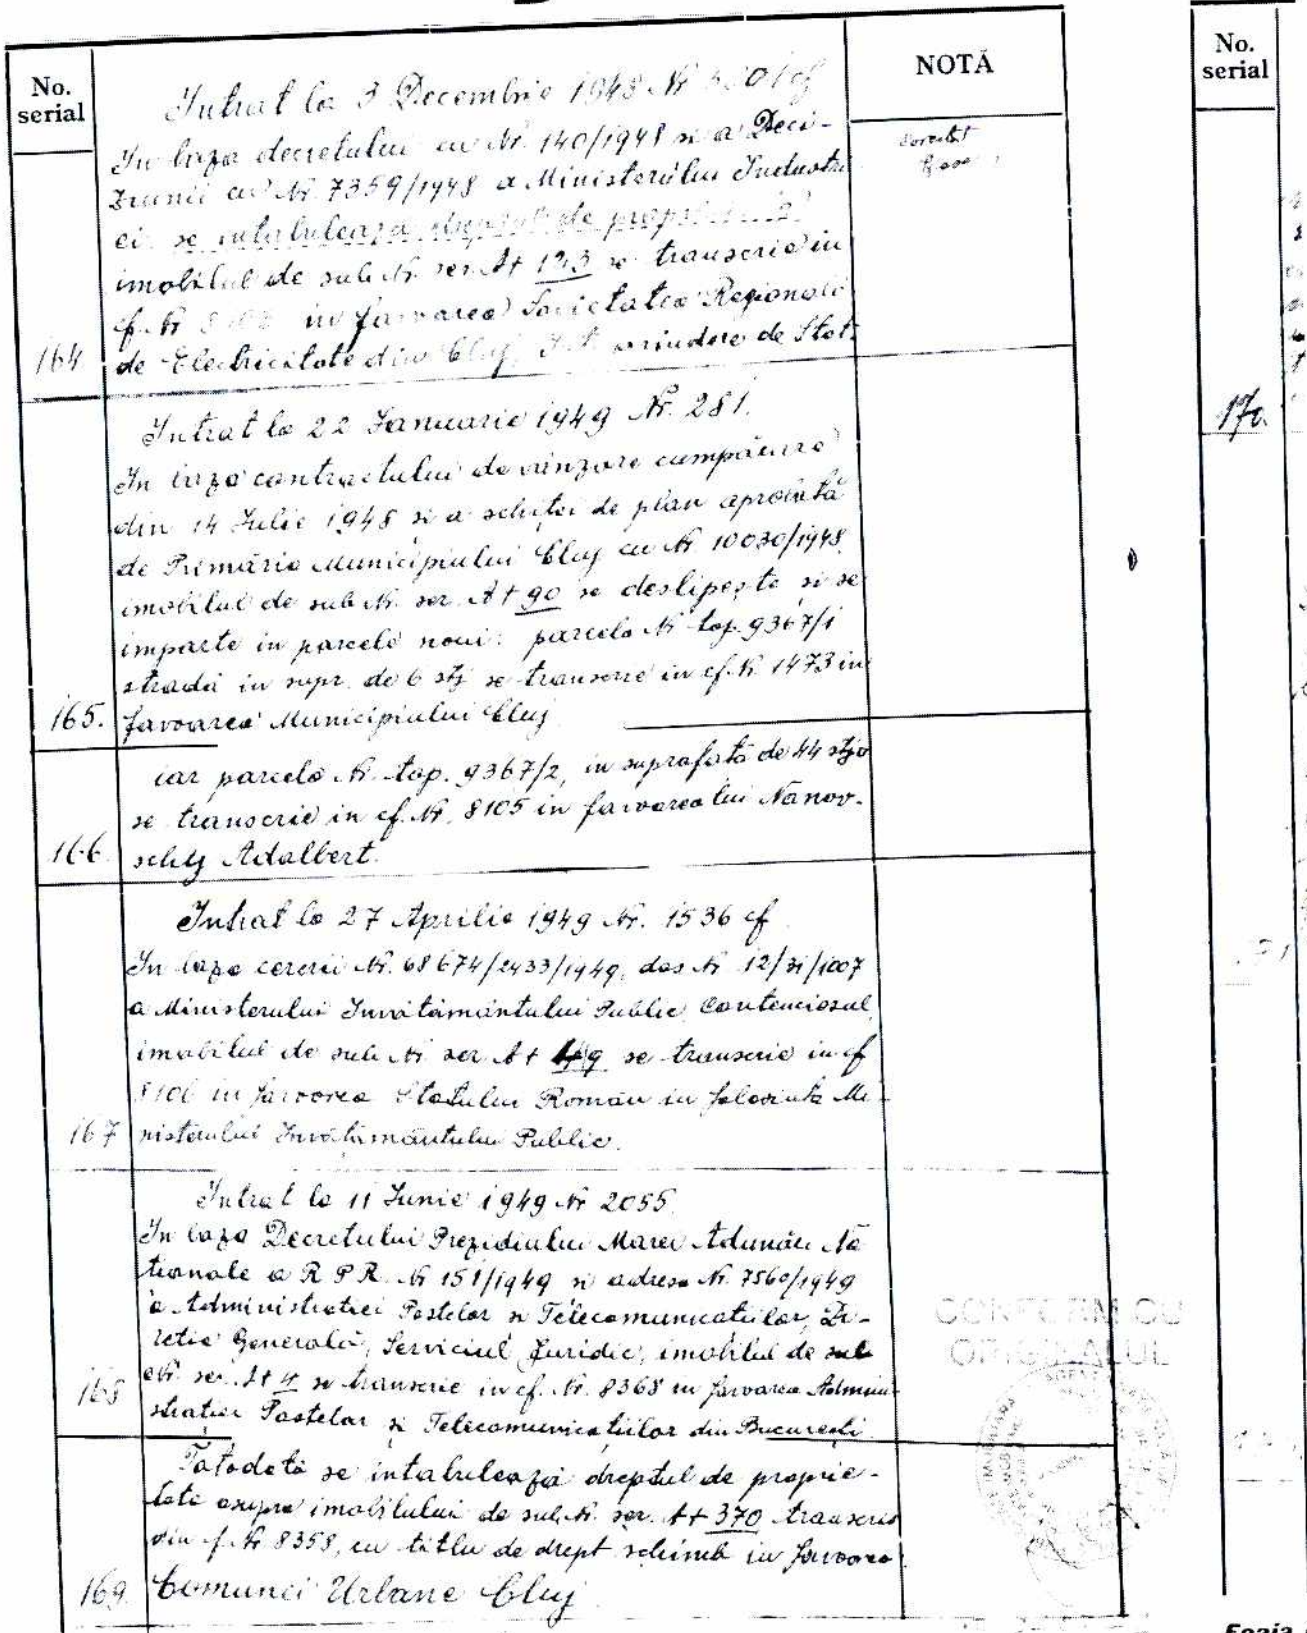 No. serial
NOTĂ
Intrat la 3 Decembrie 1948 Nr
In baza decretului cu Nr. 140/1948 si a Deci-
ziunii cu Nr. 7359/1948 a Ministerului Industri
ei se intabuleaza de
imobilul de sub Nr. ser. A+ 123 se transcrie in
cf. Nr in favoarea Societatea Regionala
164 de Electricitate din Cluj, de Stat.
Intrat la 22 Ianuarie 1949 Nr. 281.
In baza contractului de vânzare cumpărare
din 14 Iulie 1948 si a schiței de plan aprobată
de Primăria Municipiului Cluj cu Nr. 10030/1948
imobilul de sub Nr. ser. A+ 90 se deslipește si se
imparte in parcele noui: parcela Nr top. 9367/1
stradă in supr. de 6 stj se transcrie in cf. Nr. 1473 in
165. favoarea Municipiului Cluj
iar parcela Nr. top. 9367/2, in suprafată de 44 stj
se transcrie in cf. Nr. 8105 in favoarea lui Nanov-
166 schy Adalbert.
Intrat la 27 Aprilie 1949 Nr. 1536 cf
In baza cererii Nr. 68674/2433/1949, dos Nr 12/31/1007
a Ministerului Invătământului Public, Contenciosul,
imobilul de sub Nr ser A+ 49 se transcrie in cf
8106 in favoarea Statului Român in folosinta Mi-
167 nisterului Invătământului Public.
Intrat la 11 Iunie 1949 Nr 2055
In baza Decretului Prezidiului Marei Adunări Na
tionale a R P R. Nr 151/1949 si adresa Nr. 7560/1949
a Administratiei Postelor si Telecomunicatiilor, Di-
rectia Generală, Serviciul Juridic, imobilul de sub
Nr. ser. A+ 4 se transcrie in cf. Nr. 8368 in favoarea Admini-
168 stratiei Postelor si Telecomunicatiilor din Bucuresti.
Totodată se intabulează dreptul de proprie-
tate asupra imobilului de sub Nr. ser. A+ 370 transcris
din cf. Nr 8358, cu titlu de drept schimb in favoarea
169. Comunei Urbane Cluj
CONFORM CU
ORIGINALUL
No. serial
170.
Foaia